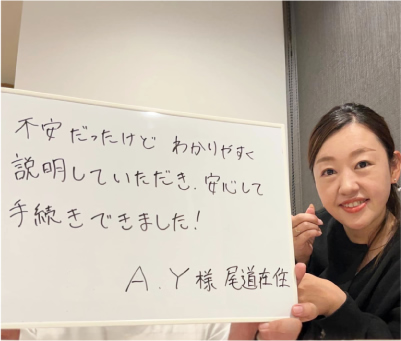 不安だったけど わかりやすく
説明していただき、安心して
手続きできました!
A.Y様 尾道在住